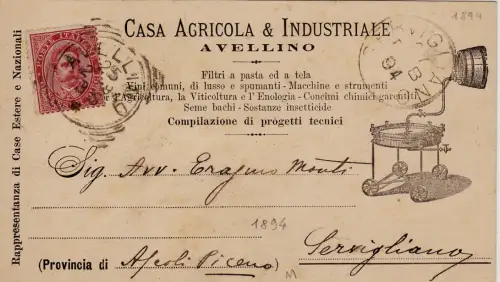 CASA AGRICOLA & INDUSTRIALE
AVELLINO
Filtri a pasta ed a tela
Vini comuni, di lusso e spumanti - Macchine e strumenti
per l'Agricoltura, la Viticoltura e l'Enologia - Concimi chimici garentiti
Seme bachi - Sostanze insetticide
Compilazione di progetti tecnici
Rappresentanza di Case Estere e Nazionali
1894
94
Sig. Avv. Erasmo Monti
1894
Servigliano
(Provincia di Ascoli Piceno)
M